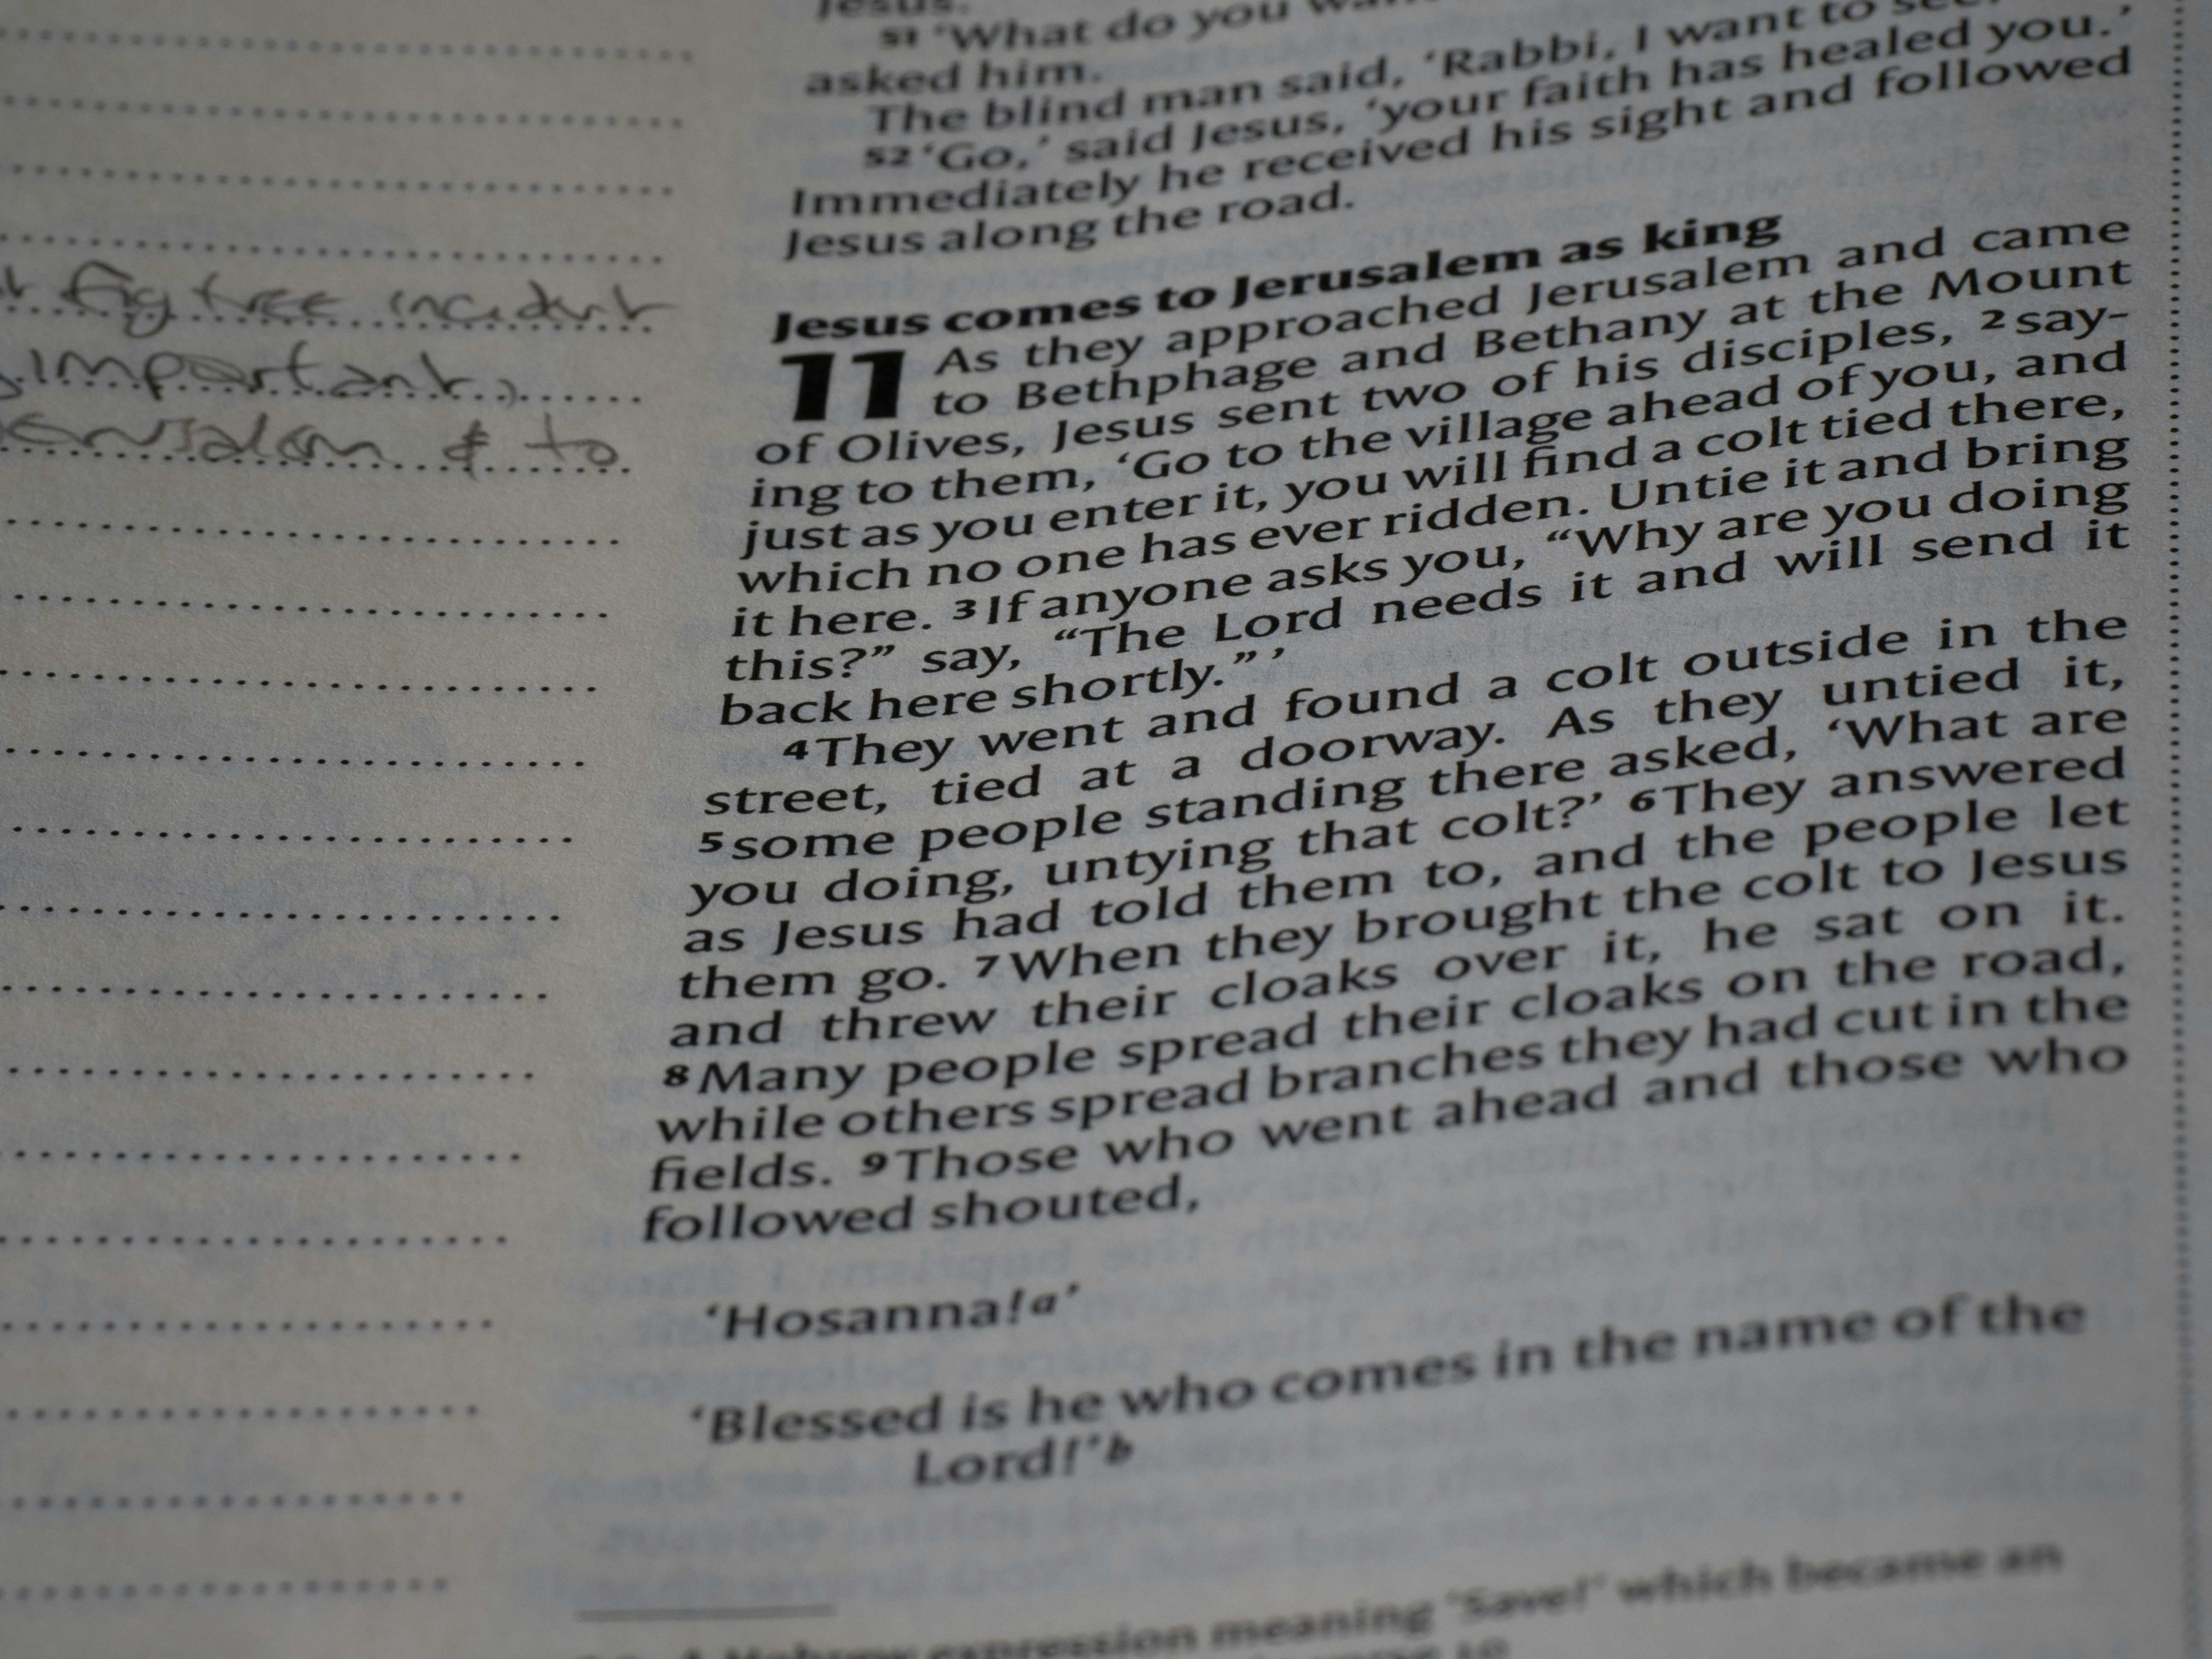 Jesus.
51 'What do you
asked him.
The blind man said, 'Rabbi, I want to see.
52 'Go,' said Jesus, 'your faith has healed you.'
Immediately he received his sight and followed
Jesus along the road.
Jesus comes to Jerusalem as king
11 As they approached Jerusalem and came
to Bethphage and Bethany at the Mount
of Olives, Jesus sent two of his disciples, 2 say-
ing to them, 'Go to the village ahead of you, and
just as you enter it, you will find a colt tied there,
which no one has ever ridden. Untie it and bring
it here. 3 If anyone asks you, “Why are you doing
this?” say, “The Lord needs it and will send it
back here shortly.” ’
4 They went and found a colt outside in the
street, tied at a doorway. As they untied it,
5 some people standing there asked, ‘What are
you doing, untying that colt?’ 6 They answered
as Jesus had told them to, and the people let
them go. 7 When they brought the colt to Jesus
and threw their cloaks over it, he sat on it.
8 Many people spread their cloaks on the road,
while others spread branches they had cut in the
fields. 9 Those who went ahead and those who
followed shouted,
‘Hosanna!a’
‘Blessed is he who comes in the name of the
Lord!’b
A Hebrew expression meaning ‘Save!’ which became an
fig tree incident
important,
& to